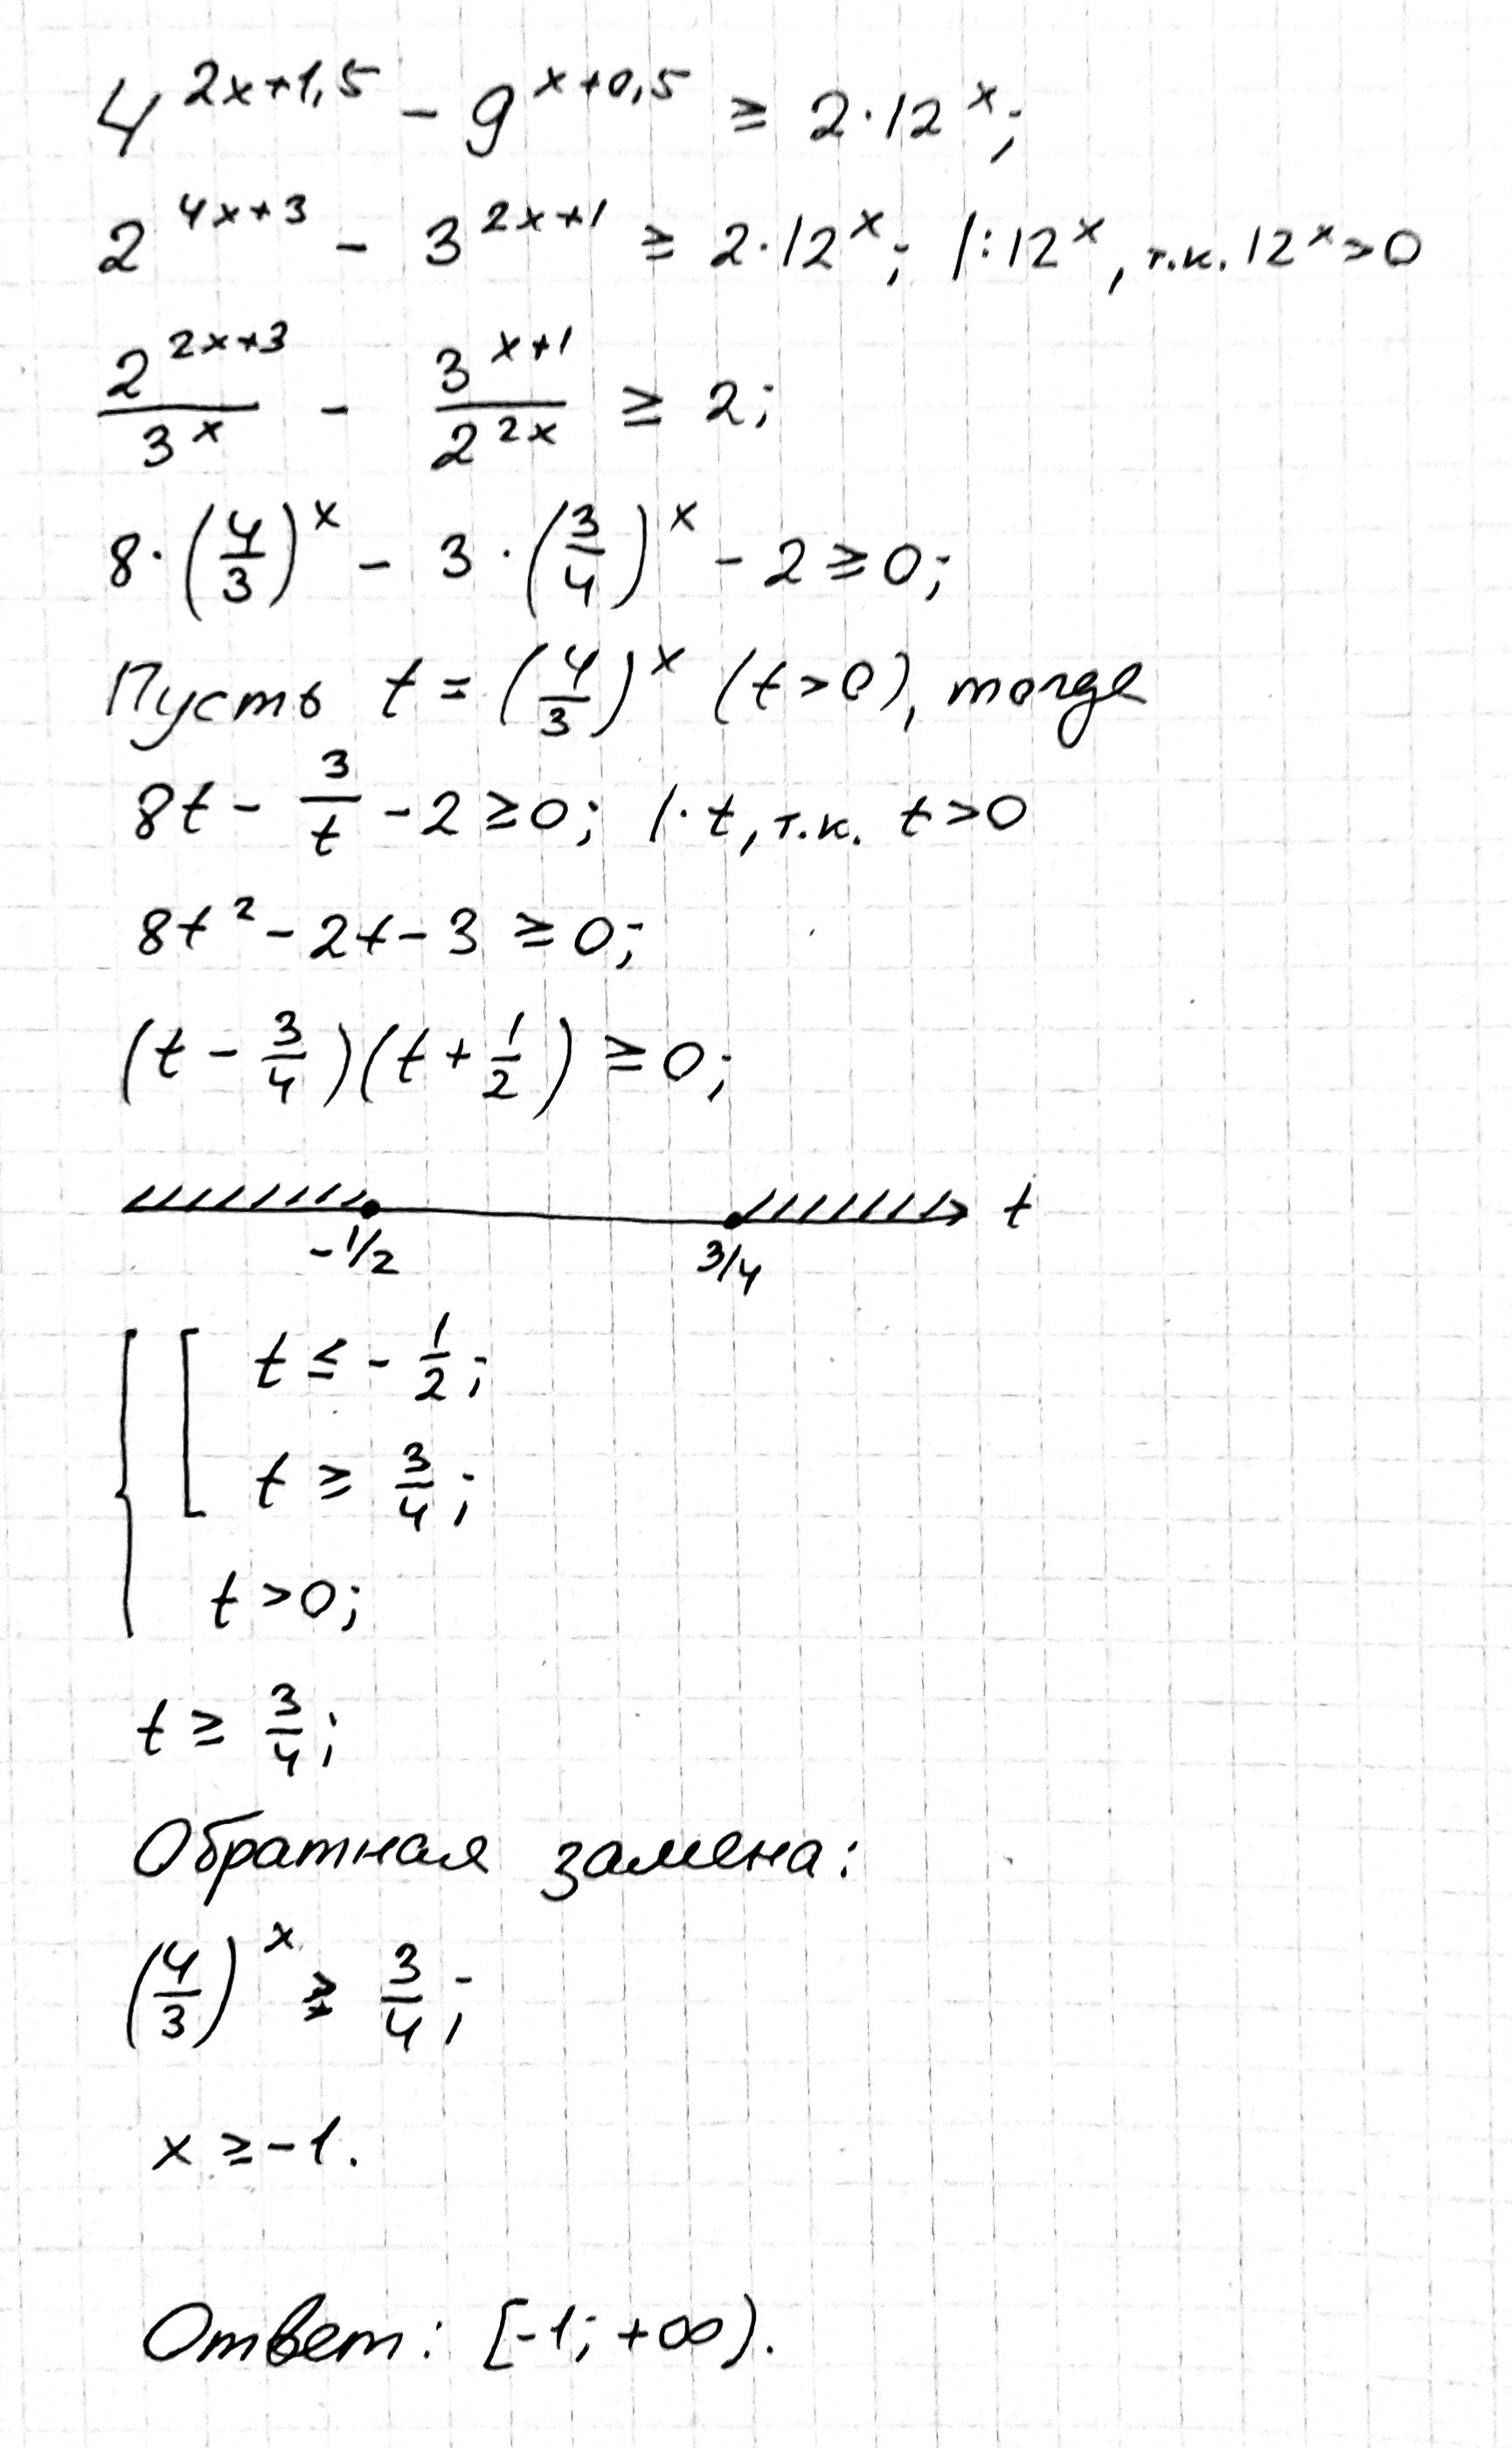 4^{2x+1,5} - 9^{x+0,5} ≥ 2·12^x;
2^{4x+3} - 3^{2x+1} ≥ 2·12^x; |:12^x, т.к. 12^x>0
\frac{2^{2x+3}}{3^x} - \frac{3^{x+1}}{2^{2x}} ≥ 2;
8·(\frac{4}{3})^x - 3·(\frac{3}{4})^x - 2 ≥ 0;
Пусть t = (\frac{4}{3})^x (t>0), тогда
8t - \frac{3}{t} - 2 ≥ 0; |·t, т.к. t>0
8t^2 - 2t - 3 ≥ 0;
(t - \frac{3}{4})(t + \frac{1}{2}) ≥ 0;
t
-1/2 3/4
t ≤ -\frac{1}{2};
t ≥ \frac{3}{4};
t > 0;
t ≥ \frac{3}{4};
Обратная замена:
(\frac{4}{3})^x ≥ \frac{3}{4};
x ≥ -1.
Ответ: [-1; +∞).